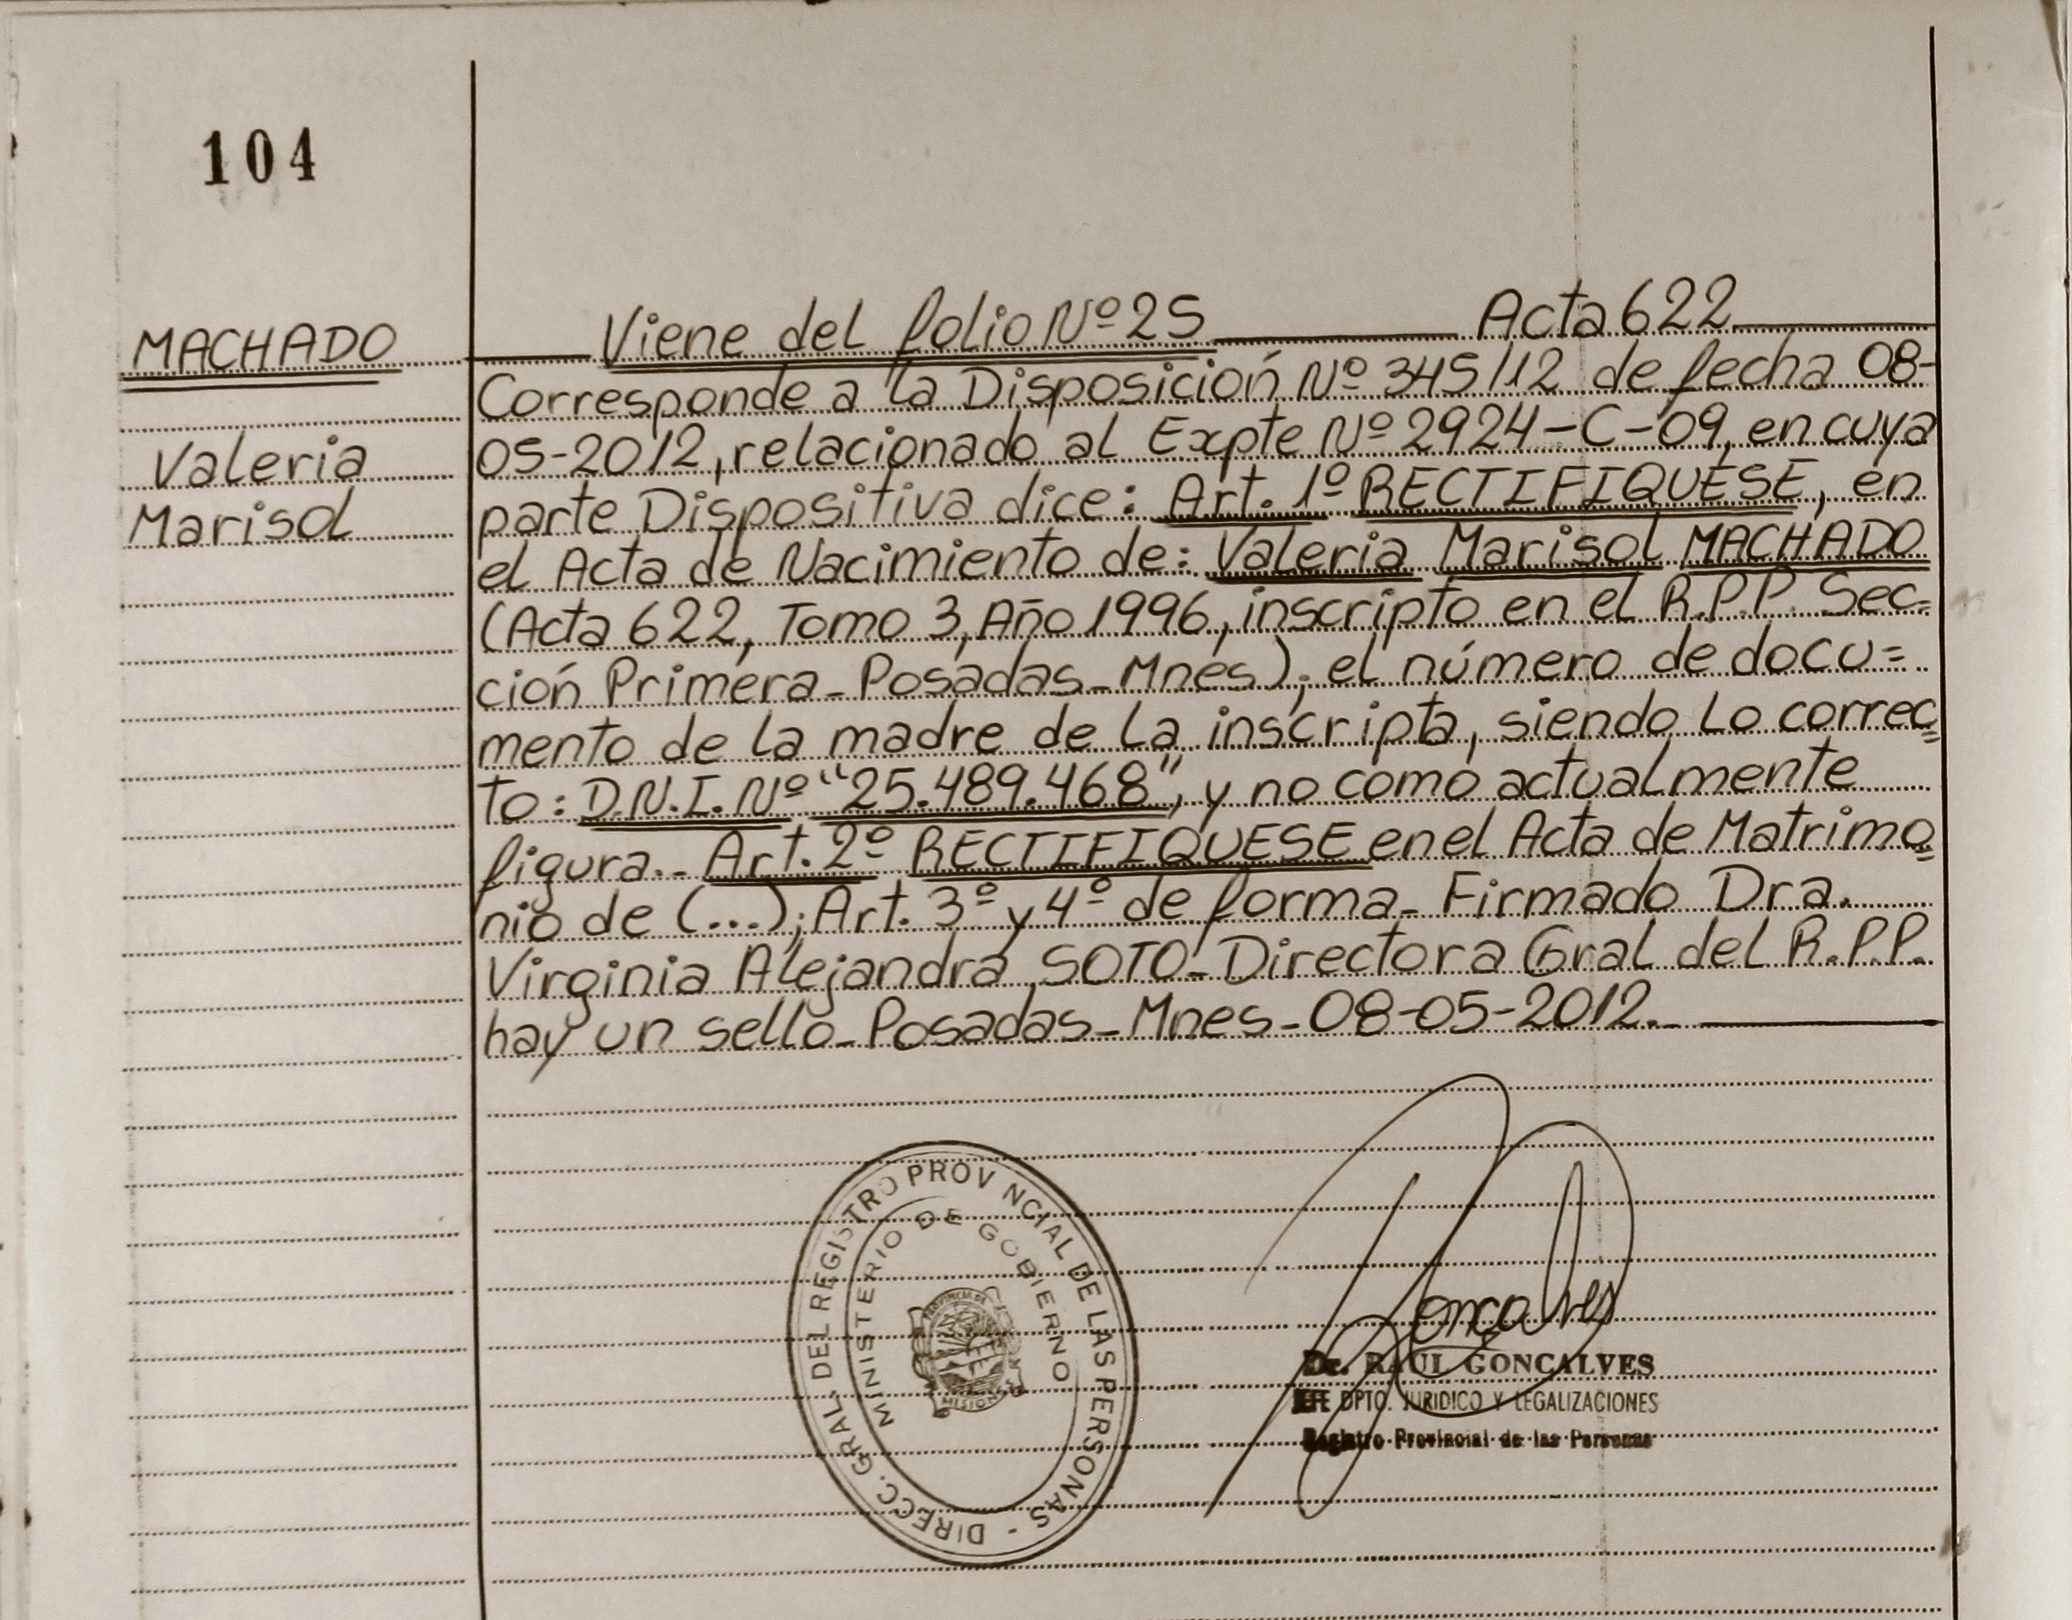 104
MACHADO
Valeria
Marisol
Viene del folio Nº 25 Acta 622
Corresponde a la Disposición Nº 345/12 de fecha 08-
05-2012, relacionado al Expte Nº 2924-C-09, en cuya
parte Dispositiva dice: Art. 1º RECTIFIQUESE, en
el Acta de Nacimiento de: Valeria Marisol MACHADO
(Acta 622, Tomo 3, Año 1996, inscripto en el R.P.P. Sec=
ción Primera_Posadas_Mnes); el número de docu=
mento de la madre de la inscripta, siendo lo correc=
to: D.N.I. Nº "25.489.468", y no como actualmente
figura._ Art. 2º RECTIFIQUESE en el Acta de Matrimo=
nio de (...); Art. 3º y 4º de forma_ Firmado Dra.
Virginia Alejandra SOTO_Directora Gral del R.P.P.
hay un sello_Posadas_Mnes_08-05-2012._
DIRECC. GRAL. DEL REGISTRO PROVINCIAL DE LAS PERSONAS -
MINISTERIO DE GOBIERNO
PROVINCIA DE
MISIONES
Goncalves
Dr. RAUL GONCALVES
JEFE DPTO. JURIDICO Y LEGALIZACIONES
Registro Provincial de las Personas